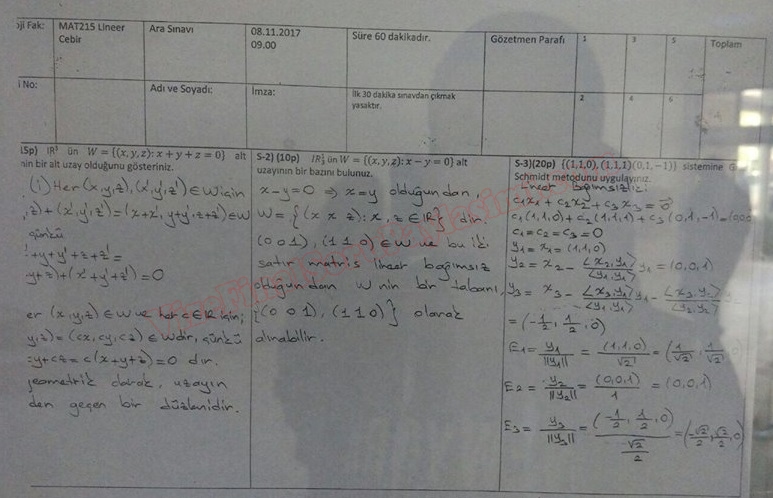 oji Fak: MAT215 Lineer Cebir Ara Sınavı 08.11.2017 09.00 Süre 60 dakikadır. Gözetmen Parafı 1 3 5 Toplam
i No: Adı ve Soyadı: İmza: İlk 30 dakika sınavdan çıkmak yasaktır. 2 4 6
15p) IR³ ün W = {(x, y, z): x + y + z = 0} alt
nin bir alt uzay olduğunu gösteriniz.
(i) Her (x,y,z), (x',y',z') ∈ W için
,z)+(x',y',z')=(x+x', y+y', z+z') ∈ W
çünkü
'+y+y'+z+z'=
y+z)+(x'+y'+z')=0
er (x,y,z) ∈ W ve her c ∈ IR için;
y,z)=(cx,cy,cz) ∈ W dır, çünkü
=y+cz=c(x+y+z)=0 dır.
geometrik olarak, uzayın
den geçen bir düzlemidir.
S-2) (10p) IR¹₃ ün W = {(x, y, z): x − y = 0} alt
uzayının bir bazını bulunuz.
x-y=0 ⇒ x=y olduğundan
W={(x x z): x, z ∈ IR} dir.
(0 0 1), (1 1 0) ∈ W ve bu iki
satır matris lineer bağımsız
olduğundan W nin bir tabanı
{(0 0 1), (1 1 0)} olarak
alınabilir.
S-3)(20p) {(1,1,0), (1,1,1)(0,1,−1)} sistemine
Schmidt metodunu uygulayınız.
Lineer Bağımsızlık:
c₁x₁ + c₂x₂ + c₃x₃ = 0
c₁(1,1,0)+c₂(1,1,1)+c₃(0,1,-1)=(0,0,0
c₁=c₂=c₃=0
y₁=x₁=(1,1,0)
y₂=x₂ - <x₂,y₁>/<y₁,y₁> y₁ = (0,0,1)
y₃=x₃ - <x₃,y₁>/<y₁,y₁> y₁ - <x₃,y₂>/<y₂,y₂>
=(-1/2, 1/2, 0)
E₁= y₁/||y₁|| = (1,1,0)/√2 = (1/√2, 1/√2, 0)
E₂= y₂/||y₂|| = (0,0,1)/1 = (0,0,1)
E₃= y₃/||y₃|| = (-1/2, 1/2, 0)/(√2/2) = (-√2/2, √2/2, 0)